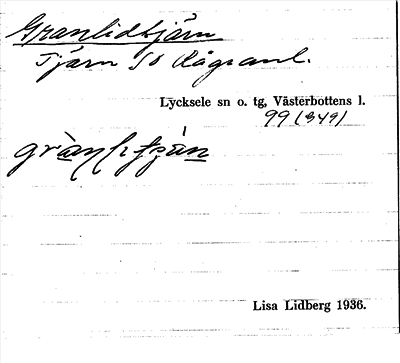 Granlidtjärn
Tjärn SO Rågranl.
Lycksele sn o. tg, Västerbottens l.
99 (349)
Lisa Lidberg 1936.